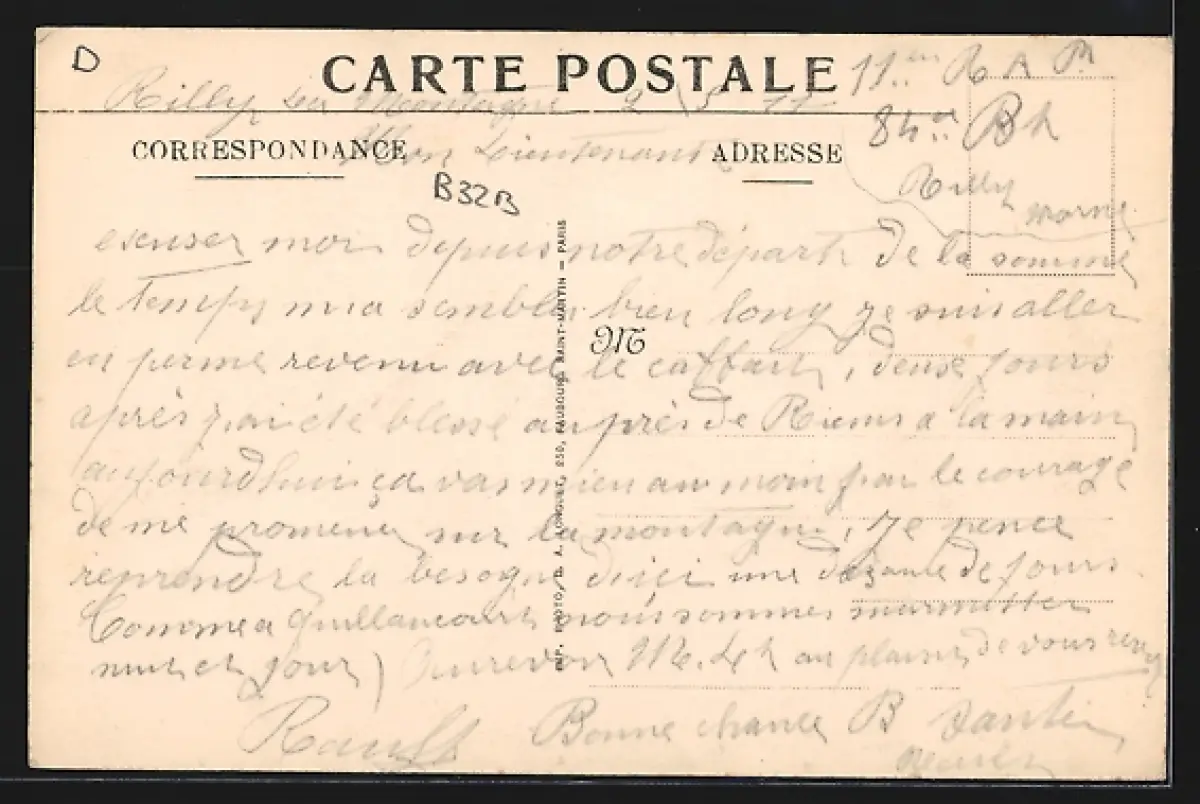 D
CARTE POSTALE
11em R A P
Rilly la Montagne 2 5 17
84e Bt
CORRESPONDANCE
Mon Lieutenant
ADRESSE
B32B
Rilly
Marne
escuser moi depuis notre départ de la somme
le temps ma sembler bien long je suis aller
en perme revenu avec le caffart, deuse jours
après j'ai été blessé auprès de Riems a la main
aujourdhui ça vas mieu au moin jai le courage
de me promener sur la montagne, je pence
reprendre la besogne dici une dizaine de jours
Comme a Guillaucourt nous sommes marmitter
nuit et jour) Aurevoir M. Lt au plaisir de vous revoir
Rault Bonne chance B Santé
M
REP. PHOTO, D. A. LONGUET, 250, FAUBOURG SAINT-MARTIN — PARIS